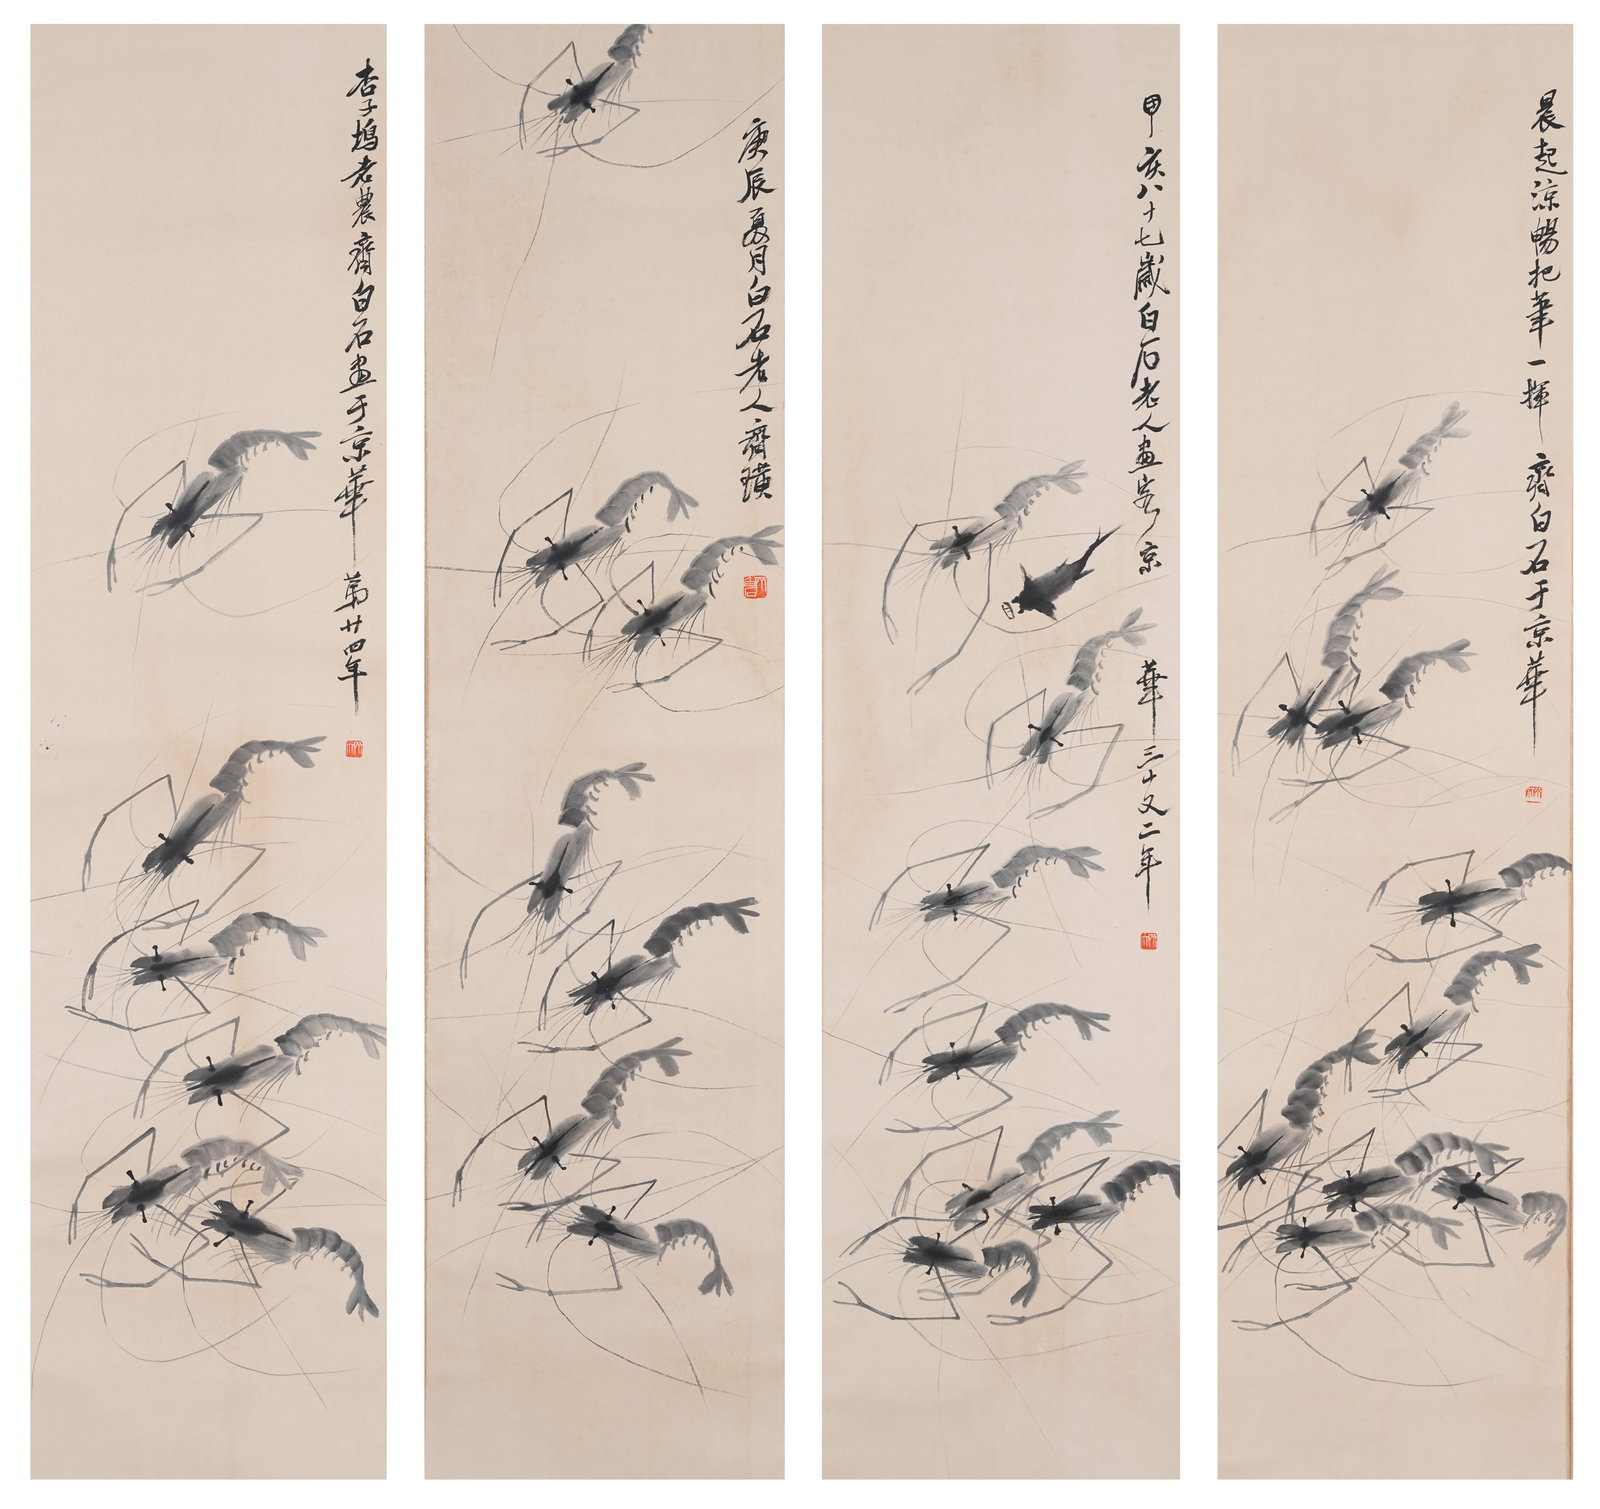 晨起涼暢把筆一揮 齊白石于京華
甲亥八十七歲白石老人畫客京華三十又二年
庚辰夏月白石老人齊璜
杏子塢老農齊白石畫于京華第廿四年